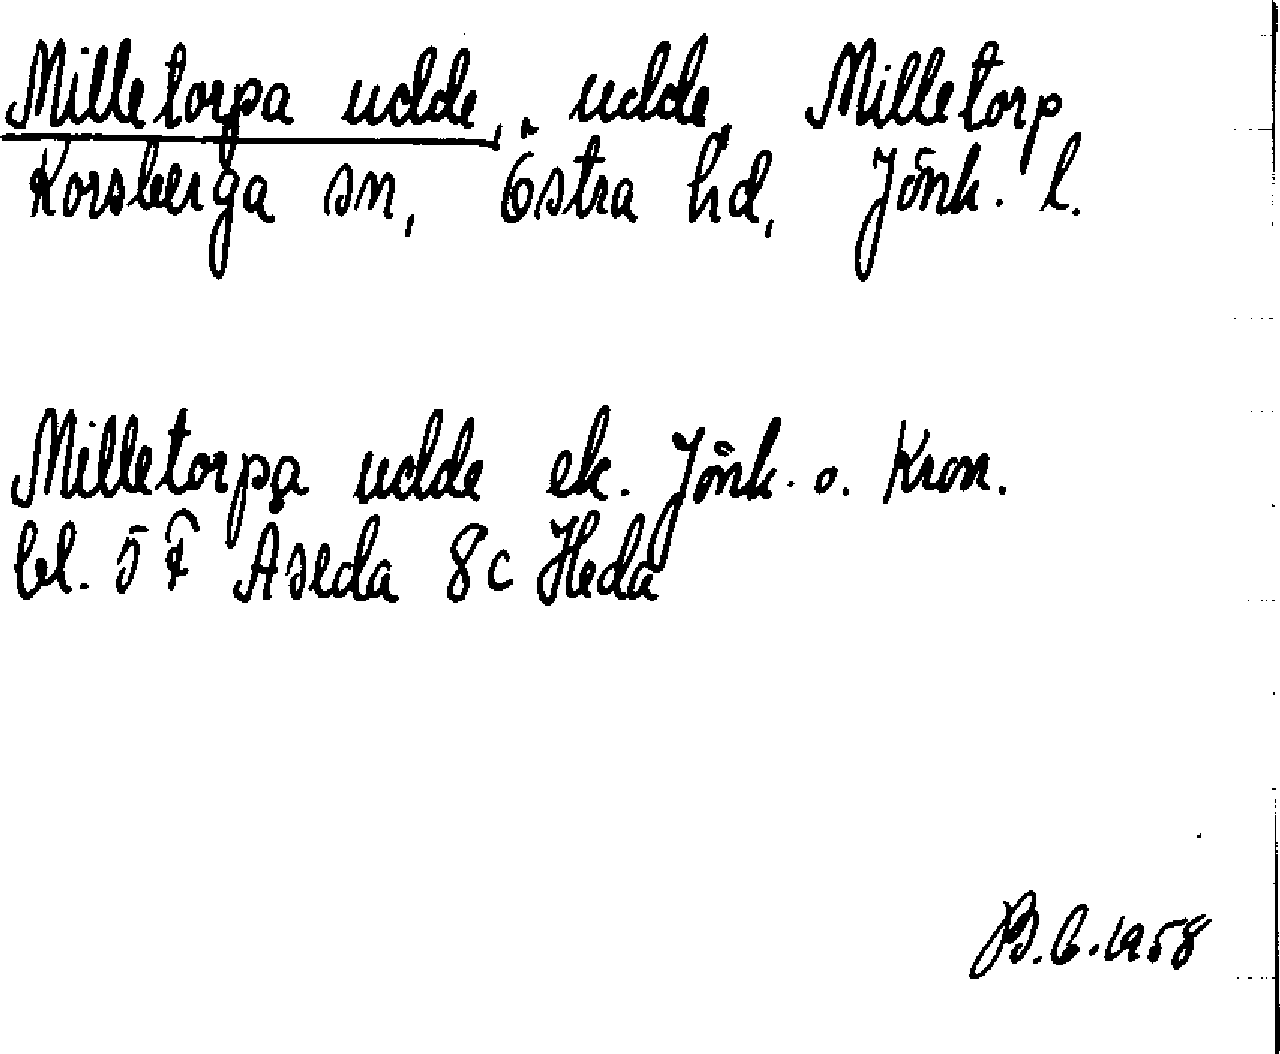 Milletorpa udde, udde, Milletorp
Korsberga sn, Östra hd, Jönk. l.
Milletorpa udde ek. Jönk. o. Kron.
bl. 5 F Åseda 8c Heda
B.C.1958